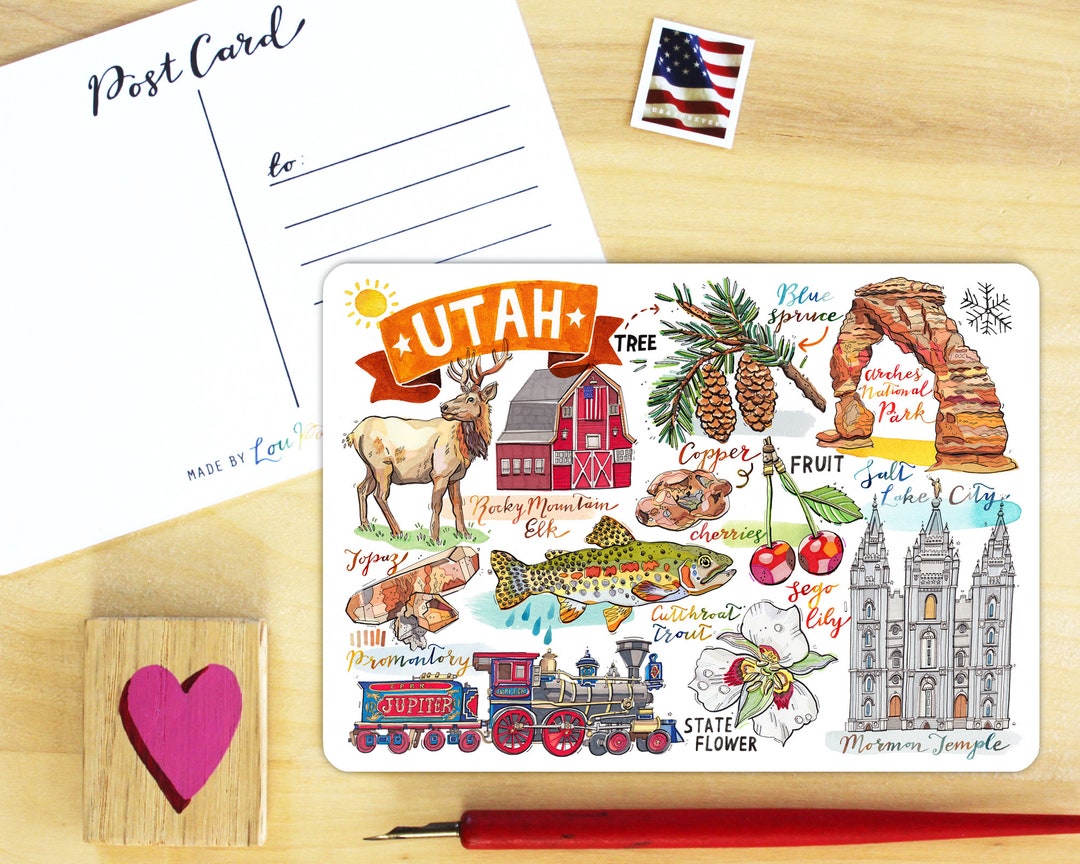 Post Card
to:
MADE BY Lou
USA FOREVER
UTAH
TREE
Blue
spruce
Arches
National
Park
Rocky Mountain
Elk
Copper
FRUIT
cherries
Salt
Lake City
Topaz
Cutthroat
Trout
Sego
lily
Promontory
C.P.R.R.
JUPITER
JUPITER
STATE
FLOWER
Mormon Temple